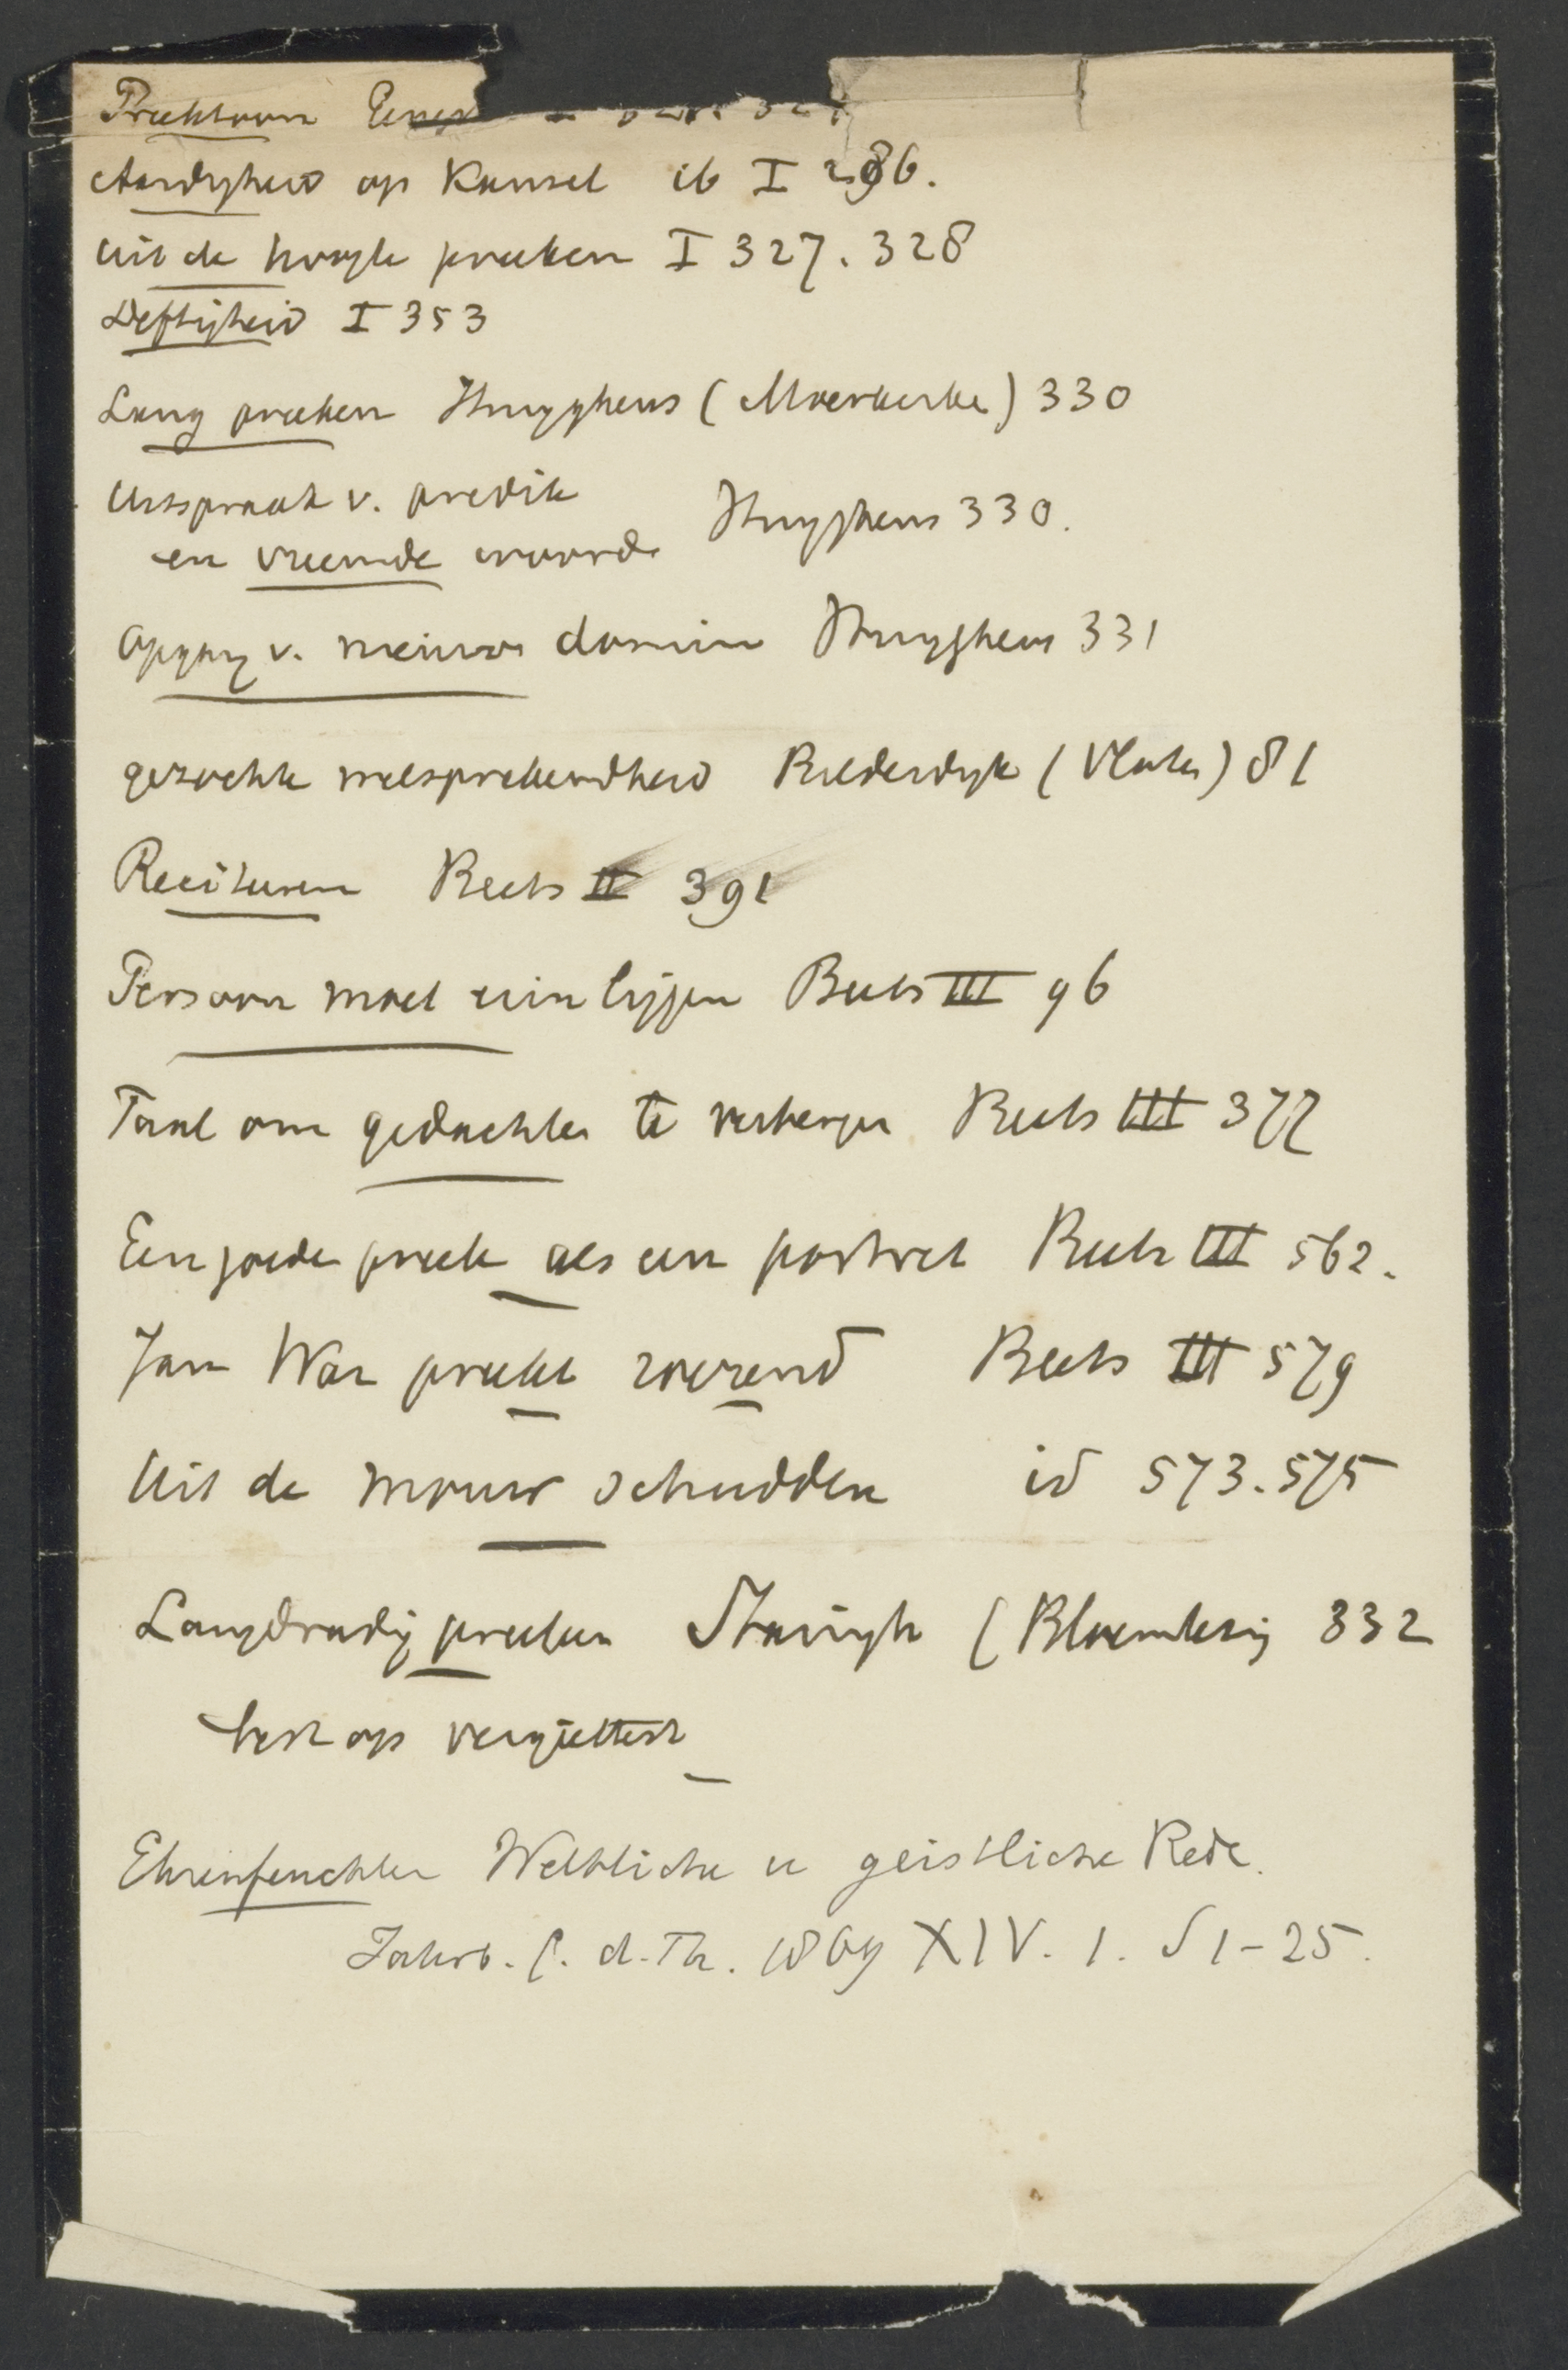 Preektoon
Aardigheid op Kansel ib I 286.
Uit de hoogte preeken I 327. 328
Deftigheid I 353
Lang preeken Huyghens (Moerkerke) 330
Uitspraak v. predik
en vreemde woorde Huyghens 330.
Opgang v. nieuwe domin Huyghens 331
gezochte welsprekendheid Bilderdyk (Vloten) 81
Reciteren Beets II 391
Persoon moet er in liggen Beets III 96
Taal om gedachten te verbergen Beets III 377
Een goede preek als een portret Beets III 562.
Jan War preekt roerend Beets III 579
Uit de mouw schudden id 573. 575
Langdradig preeken Staringh (Bloemlezing 332
Ehrenfeuchter Weltliche u geistliche Rede.
Jahrb. f. d. Th. 1869 XIV. 1. S 1-25.